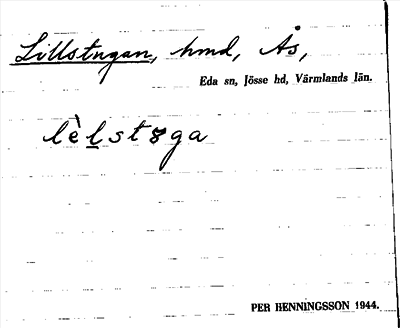 Lillstugan, hmd, Ås,
Eda sn, Jösse hd, Värmlands län.
lèlstɞga
PER HENNINGSSON 1944.